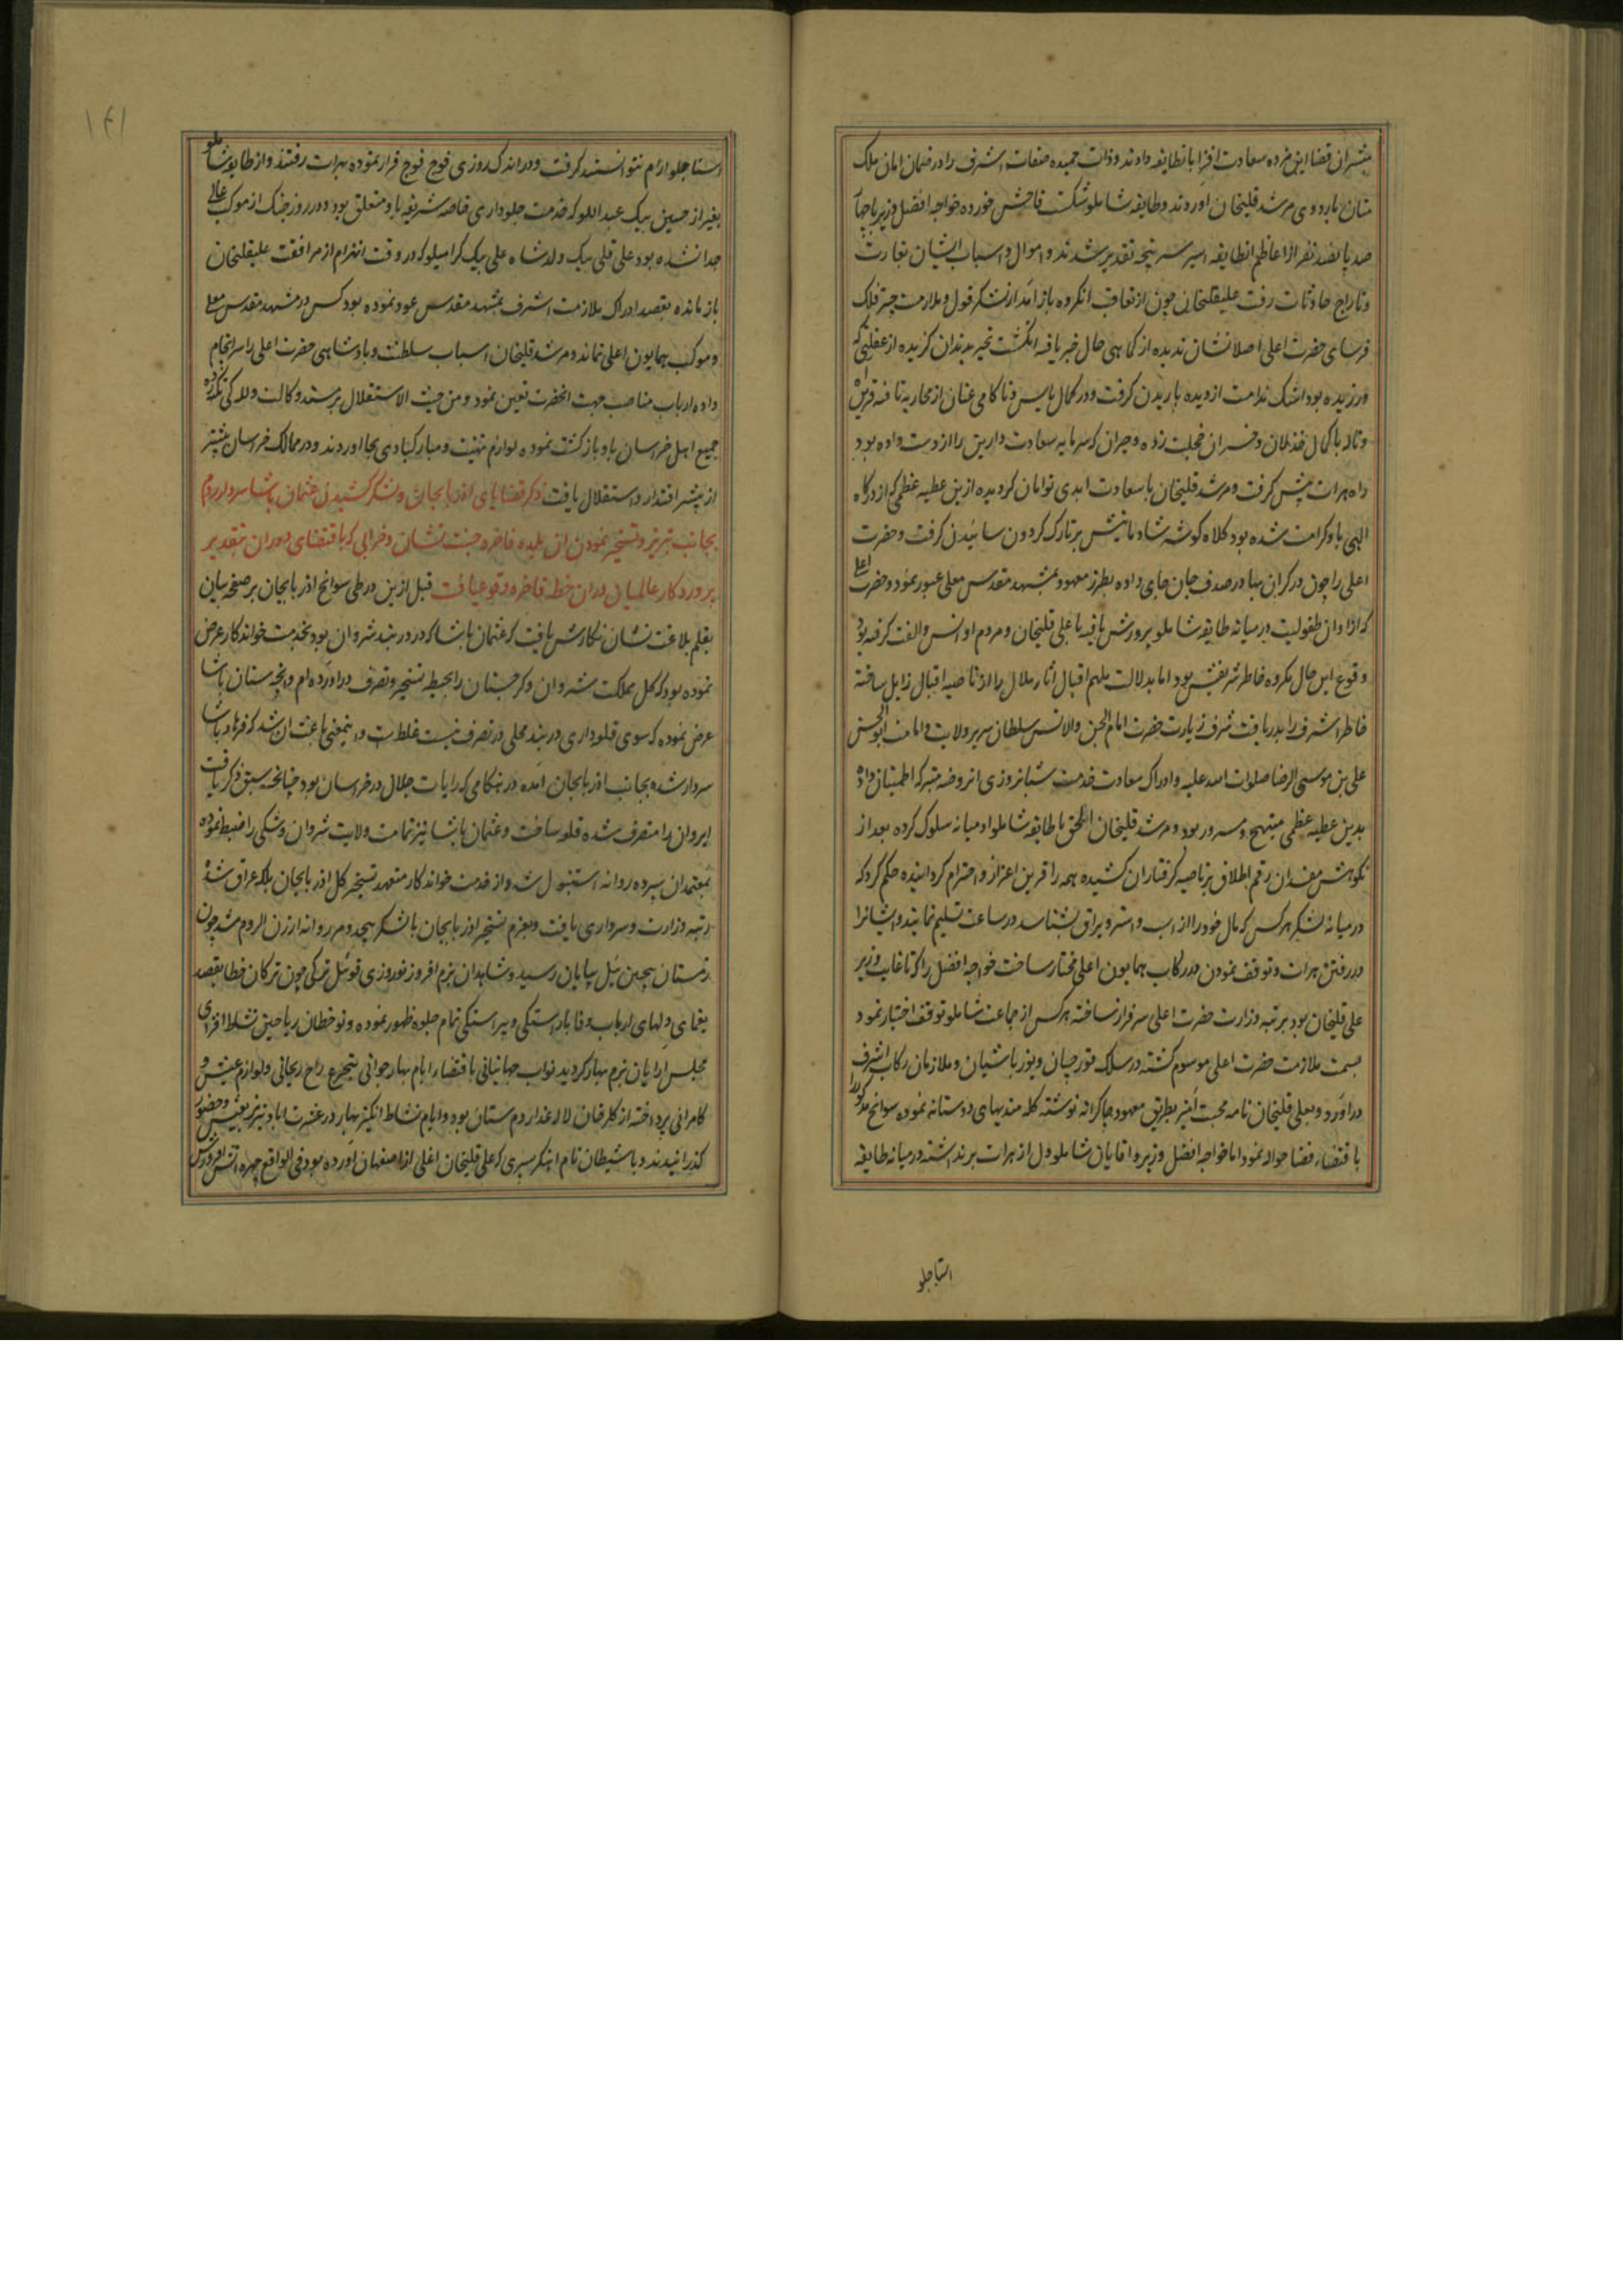 مبشران قضا این مژده سعادت افزا بانطایفه دادند و ذات حمیده صفات اشرف را در ضمان امان ملک
منان باردوی مرشد قلیخان اوردند و طایفه شاملو شکست فاحش خورده خواجه افضل وزیر با
صد پانصد نفر از اعاظم انطایفه اسیر سرپنجه تقدیر شدند و اموال و اسباب ایشان بغارت
و تاراج حادثات رفت علیقلیخان چون از تعاقب انگروه باز آمد از لشکر قول و ملازمت چتر فلک
فرسای حضرت اعلی اصلا نشان ندیده از کماهی حال خبر یافته انگشت تحیر بدندان گزیده از غفلتی که
ورزیده بود اشک ندامت از دیده باریدن گرفت و در کمال یاس و ناکامی عنان از محاربه تافته قرین آه
و ناله با کمال خذلان و خسران خجلت زده و حیران که سرمایه سعادت دارین را از دست داده بود
راه هرات پیش گرفت و مرشد قلیخان با سعادت ابدی توامان گردیده ازین عطیه عظمی که از درگاه
الهی باو کرامت شده بود کلاه گوشه شادمانیش بر تارک گردون سائیدن گرفت و حضرت
اعلی را چون در گران بها در صدف جان جای داده بطرز معهود بمشهد مقدس معلی عبور نمود و حضرت اعلی
که از اوان طفولیت در میانه طایفه شاملو پرورش یافته با علی قلیخان و مردم او انس و الفت گرفته بود
وقوع این حال مکروه خاطر شریفش بود اما بدلالت ملهم اقبال آثار ملال را از ناصیه اقبال زایل ساخته
خاطر اشرف را بدریافت شرف زیارت حضرت امام الجن والانس سلطان سریر ولایت و امامت ابوالحسن
علی بن موسی الرضا صلوات الله علیه و ادراک سعادت خدمت شبانروزی انروضه متبرکه اطمینان داده
بدین عطیه عظمی مبتهج و مسرور بود و مرشد قلیخان الحق با طایفه شاملو ادمیانه سلوک کرده بعد از
نکوهش مفسدان رقم اطلاق بر ناصیه گرفتاران کشیده همه را قرین اعزاز و احترام گردانیده حکم کرد که
در میانه لشکر هرکس که مال خود را از اسب و استر و یراق بشناسد در ساعت تسلیم نمایند و ایشانرا
در رفتن هرات و توقف نمودن در رکاب همایون اعلی مختار ساخت خواجه افضل را که تا غایت وزیر
علی قلیخان بود برتبه وزارت حضرت اعلی سرفراز ساخته هرکس از جماعت شاملو توقف اختیار نمود
بسمت ملازمت حضرت اعلی موسوم گشته در سلک قورچیان و یوزباشیان و ملازمان رکاب اشرف
دراورد و بعلی قلیخان نامه محبت آمیز بطریق معهود چاکرانه نوشته گله مندیهای دوستانه نموده سوانح مذکور را
باقتضاء قضا حواله نمود اما خواجه افضل وزیر و اقایان شاملو دل از هرات برنداشته در میانه طایفه
استاجلو
۱۴۱
استاجلو ارام نتوانستند گرفت و در اندک روزی فوج فوج فرار نموده بهرات رفتند و از طایفه شاملو
بغیر از حسین بیک عبداللو که خدمت جلوداری خاصه شریفه باو متعلق بود و در روز جنگ از موکب عالی
جدا نشده بود و علی قلی بیک ولد شاه علی بیک کرامیلو که در وقت انهزام از مرافقت علیقلیخان
باز مانده بقصد ادراک ملازمت اشرف بمشهد مقدس عود نموده بود کس در مشهد مقدس معلی
و موکب همایون اعلی نماند و مرشد قلیخان اسباب سلطنت و پادشاهی حضرت اعلی را سرانجام
داده ارباب مناصب جهت انحضرت تعیین نمود و من حیث الاستقلال بر مسند وکالت و للگی تکیه زده
جمیع اهل خراسان باو بازگشت نموده لوازم تهنیت و مبارکبادی بجا اوردند و در ممالک خراسان بیشتر
از پیشتر اقتدار و استقلال یافت ذکر قضایای اذربایجان و لشکر کشیدن عثمان پاشا سردار روم
بجانب تبریز و تسخیر نمودن ان بلده فاخره جنت نشان و خرابی که باقتضای دوران بتقدیر
پروردگار عالمیان دران خطه فاخره وقوع یافت قبل ازین در طی سوانح اذربایجان بر صفحه بیان
بقلم بلاغت نشان نگارش یافت که عثمان پاشا که در دربند شروان بود بخدمت خواندگار عرض
نموده بود که کل مملکت شروان و گرجستان را بحیطه تسخیر و تصرف دراورده ام و انچه سنان پاشا
عرض نموده که سوی قلعه داری دربند محلی در تصرف نیست غلط است و اینمعنی باعث ان شد که فرهاد پاشا
سردار شده بجانب اذربایجان آمده در هنگامی که رایات جلال در خراسان بود چنانچه سبق ذکر یافت
ایروان را متصرف شده قلعه ساخت و عثمان پاشا نیز تمامت ولایت شروان و شکی را ضبط نموده
بمعتمدان سپرده روانه استنبول شد و از خدمت خواندگار متعهد تسخیر کل اذربایجان بلکه عراق شده
رتبه وزارت و سرداری یافت و بعزم تسخیر اذربایجان با لشکر بیحد و مر روانه ارزن الروم شد چون
زمستان پیچین ئیل بپایان رسید و شاهدان بزم افروز نوروزی قوئیل ترکی چون ترکان خطا بقصد
یغمای دلهای ارباب وفا باراستگی و پیراستگی تمام جلوه ظهور نموده و نوخطان ریاحین نشاط افزای
مجلس ارایان بزم بهار گردید نواب جهانبانی باقتضاء ایام بهار جوانی بتجرع راح ریحانی و لوازم عیش و
کامرانی پرداخته از گلرخان لاله عذار دم ستان بود و ایام نشاط انگیز بهار در عشرت اباد تبریز بعیش و حضور
گذرانیدند و با شیطان نام پسری که علی قلیخان اغلی از اصفهان آورده بود فی الواقع چهره آتش افروزش